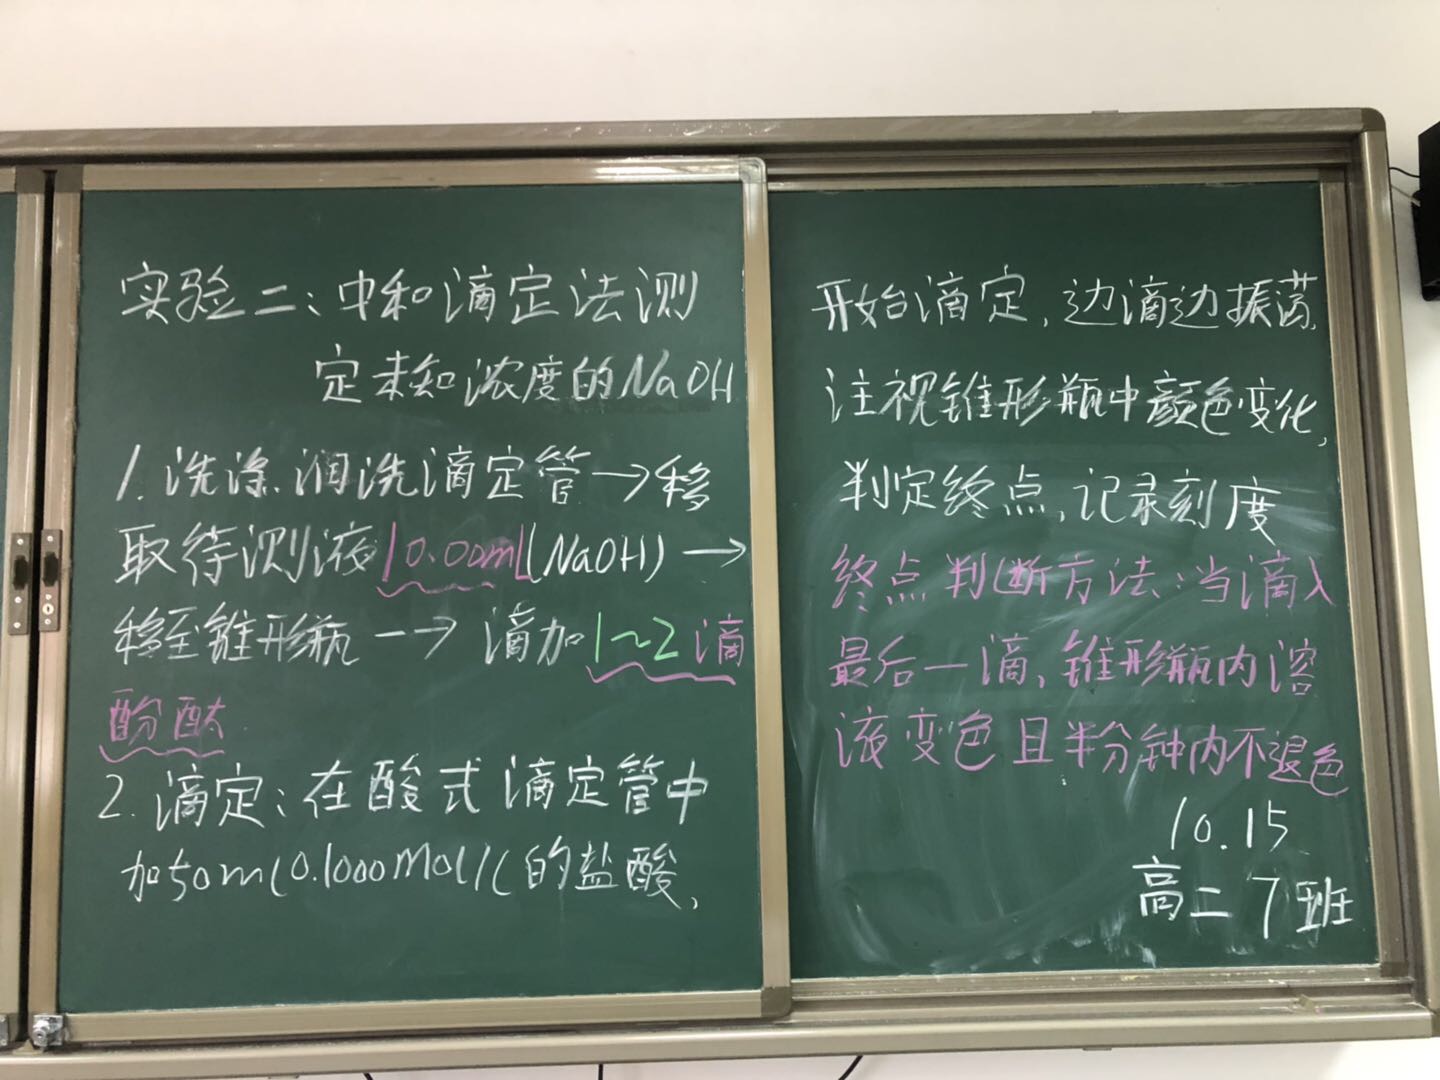 实验二:中和滴定法测
定未知浓度的NaOH
1.洗涤.润洗滴定管→移
取待测液10.00ml(NaOH)→
移至锥形瓶→滴加1~2滴
酚酞
2.滴定:在酸式滴定管中
加50ml0.1000mol/L的盐酸,
开始滴定,边滴边振荡,
注视锥形瓶中颜色变化,
判定终点,记录刻度
终点判断方法:当滴入
最后一滴,锥形瓶内溶
液变色且半分钟内不退色
10.15
高二7班